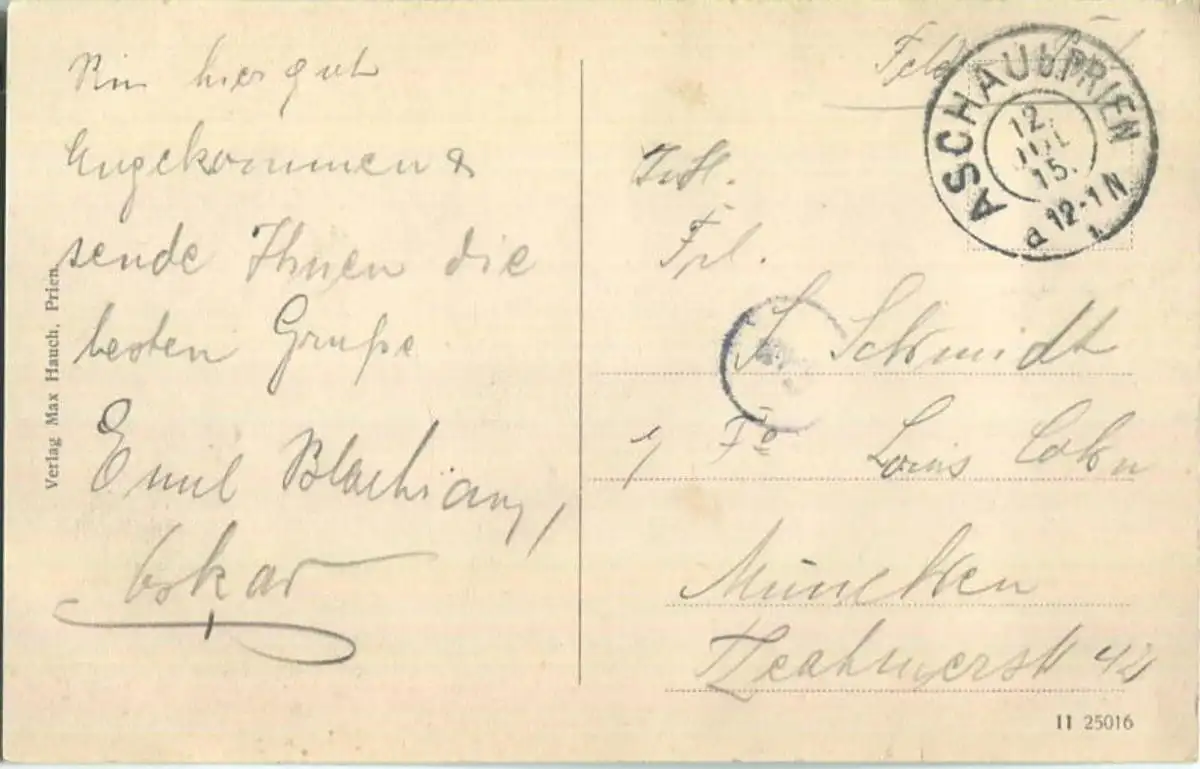 Bin hier gut
angekommen &
sende Ihnen die
besten Grüße
Emil
Oskar
Verlag Max Hauch, Prien.
ASCHAU b. PRIEN
12.
JUL
15.
a 12-1 N
Frl.
Schmidt
Fa Louis Cohn
München
42
11 25016